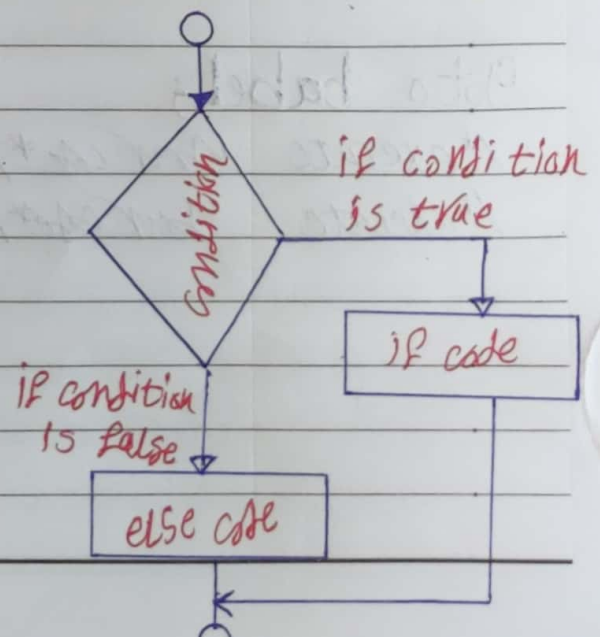 condition
if condition
is true
if code
if condition
is false
else code